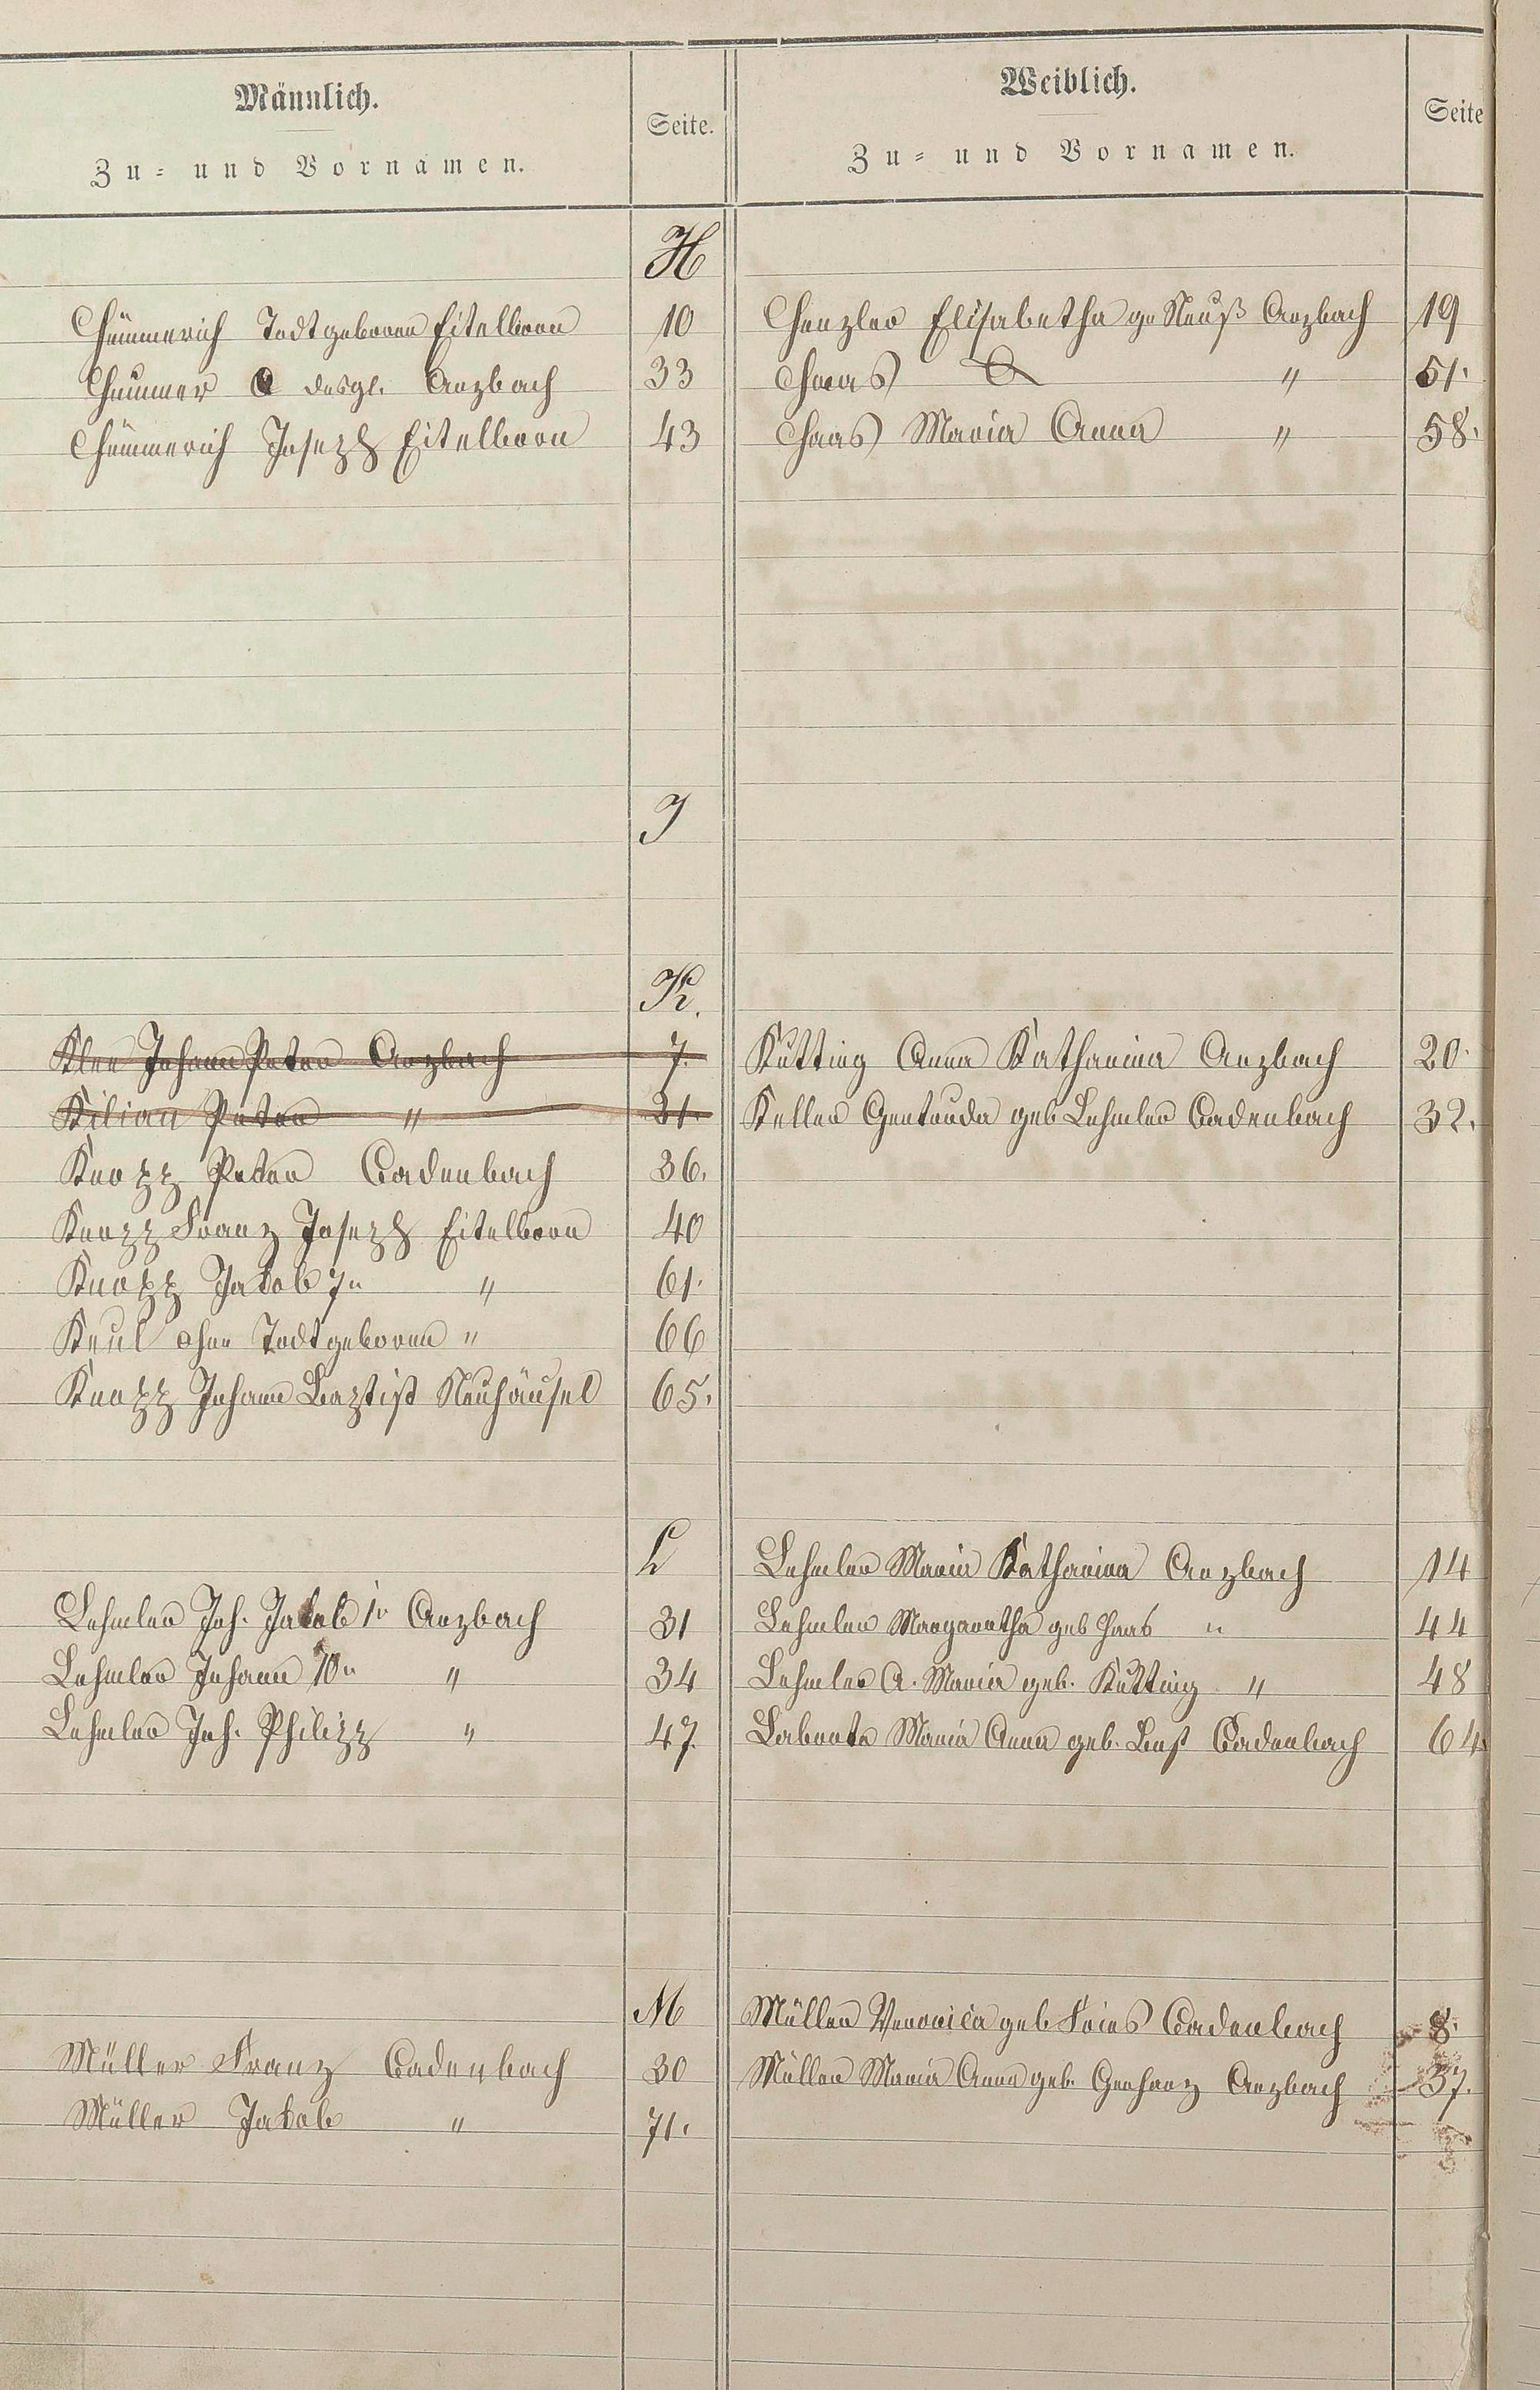 Männlich.
Zu- und Vornamen.
Seite.
Weiblich.
Zu- und Vornamen.
Seite
H
Hümmerich Todtgeboren Eitelborn 10
Hammer desgl. Arzbach 33
Hümmerich Joseph Eitelborn 43
Henzler Elisabetha ge Neuß Arzbach 19
Haas " 51.
Haas Maria Anna " 58.
J
K.
Klee Johann Peter Arzbach 7.
Kilian Peter " 21.
Knopp Peter Cadenbach 36.
Knopp Franz Joseph Eitelborn 40
Knopp Jakob 7r " 61.
Keul ohne Todtgeboren " 66
Knopp Johann Baptist Neuhäusel 65.
Kutting Anna Katharina Arzbach 20.
Keller Gertruda geb Lehmler Cadenbach 32.
L
Lehmler Joh. Jakob 1r Arzbach 31
Lehmler Johann 10r " 34
Lehmler Joh. Philipp " 47.
Lehmler Maria Katharina Arzbach 14
Lehmler Margaretha geb Haas " 44
Lehmler A. Maria geb. Kutting " 48
Labonte Maria Anna geb. Cadenbach 64.
M
Müller Franz Cadenbach 30
Müller Jakob " 71.
Müller Veronica geb Cadenbach 8.
Müller Maria Anna geb. Gerharz Arzbach 37.